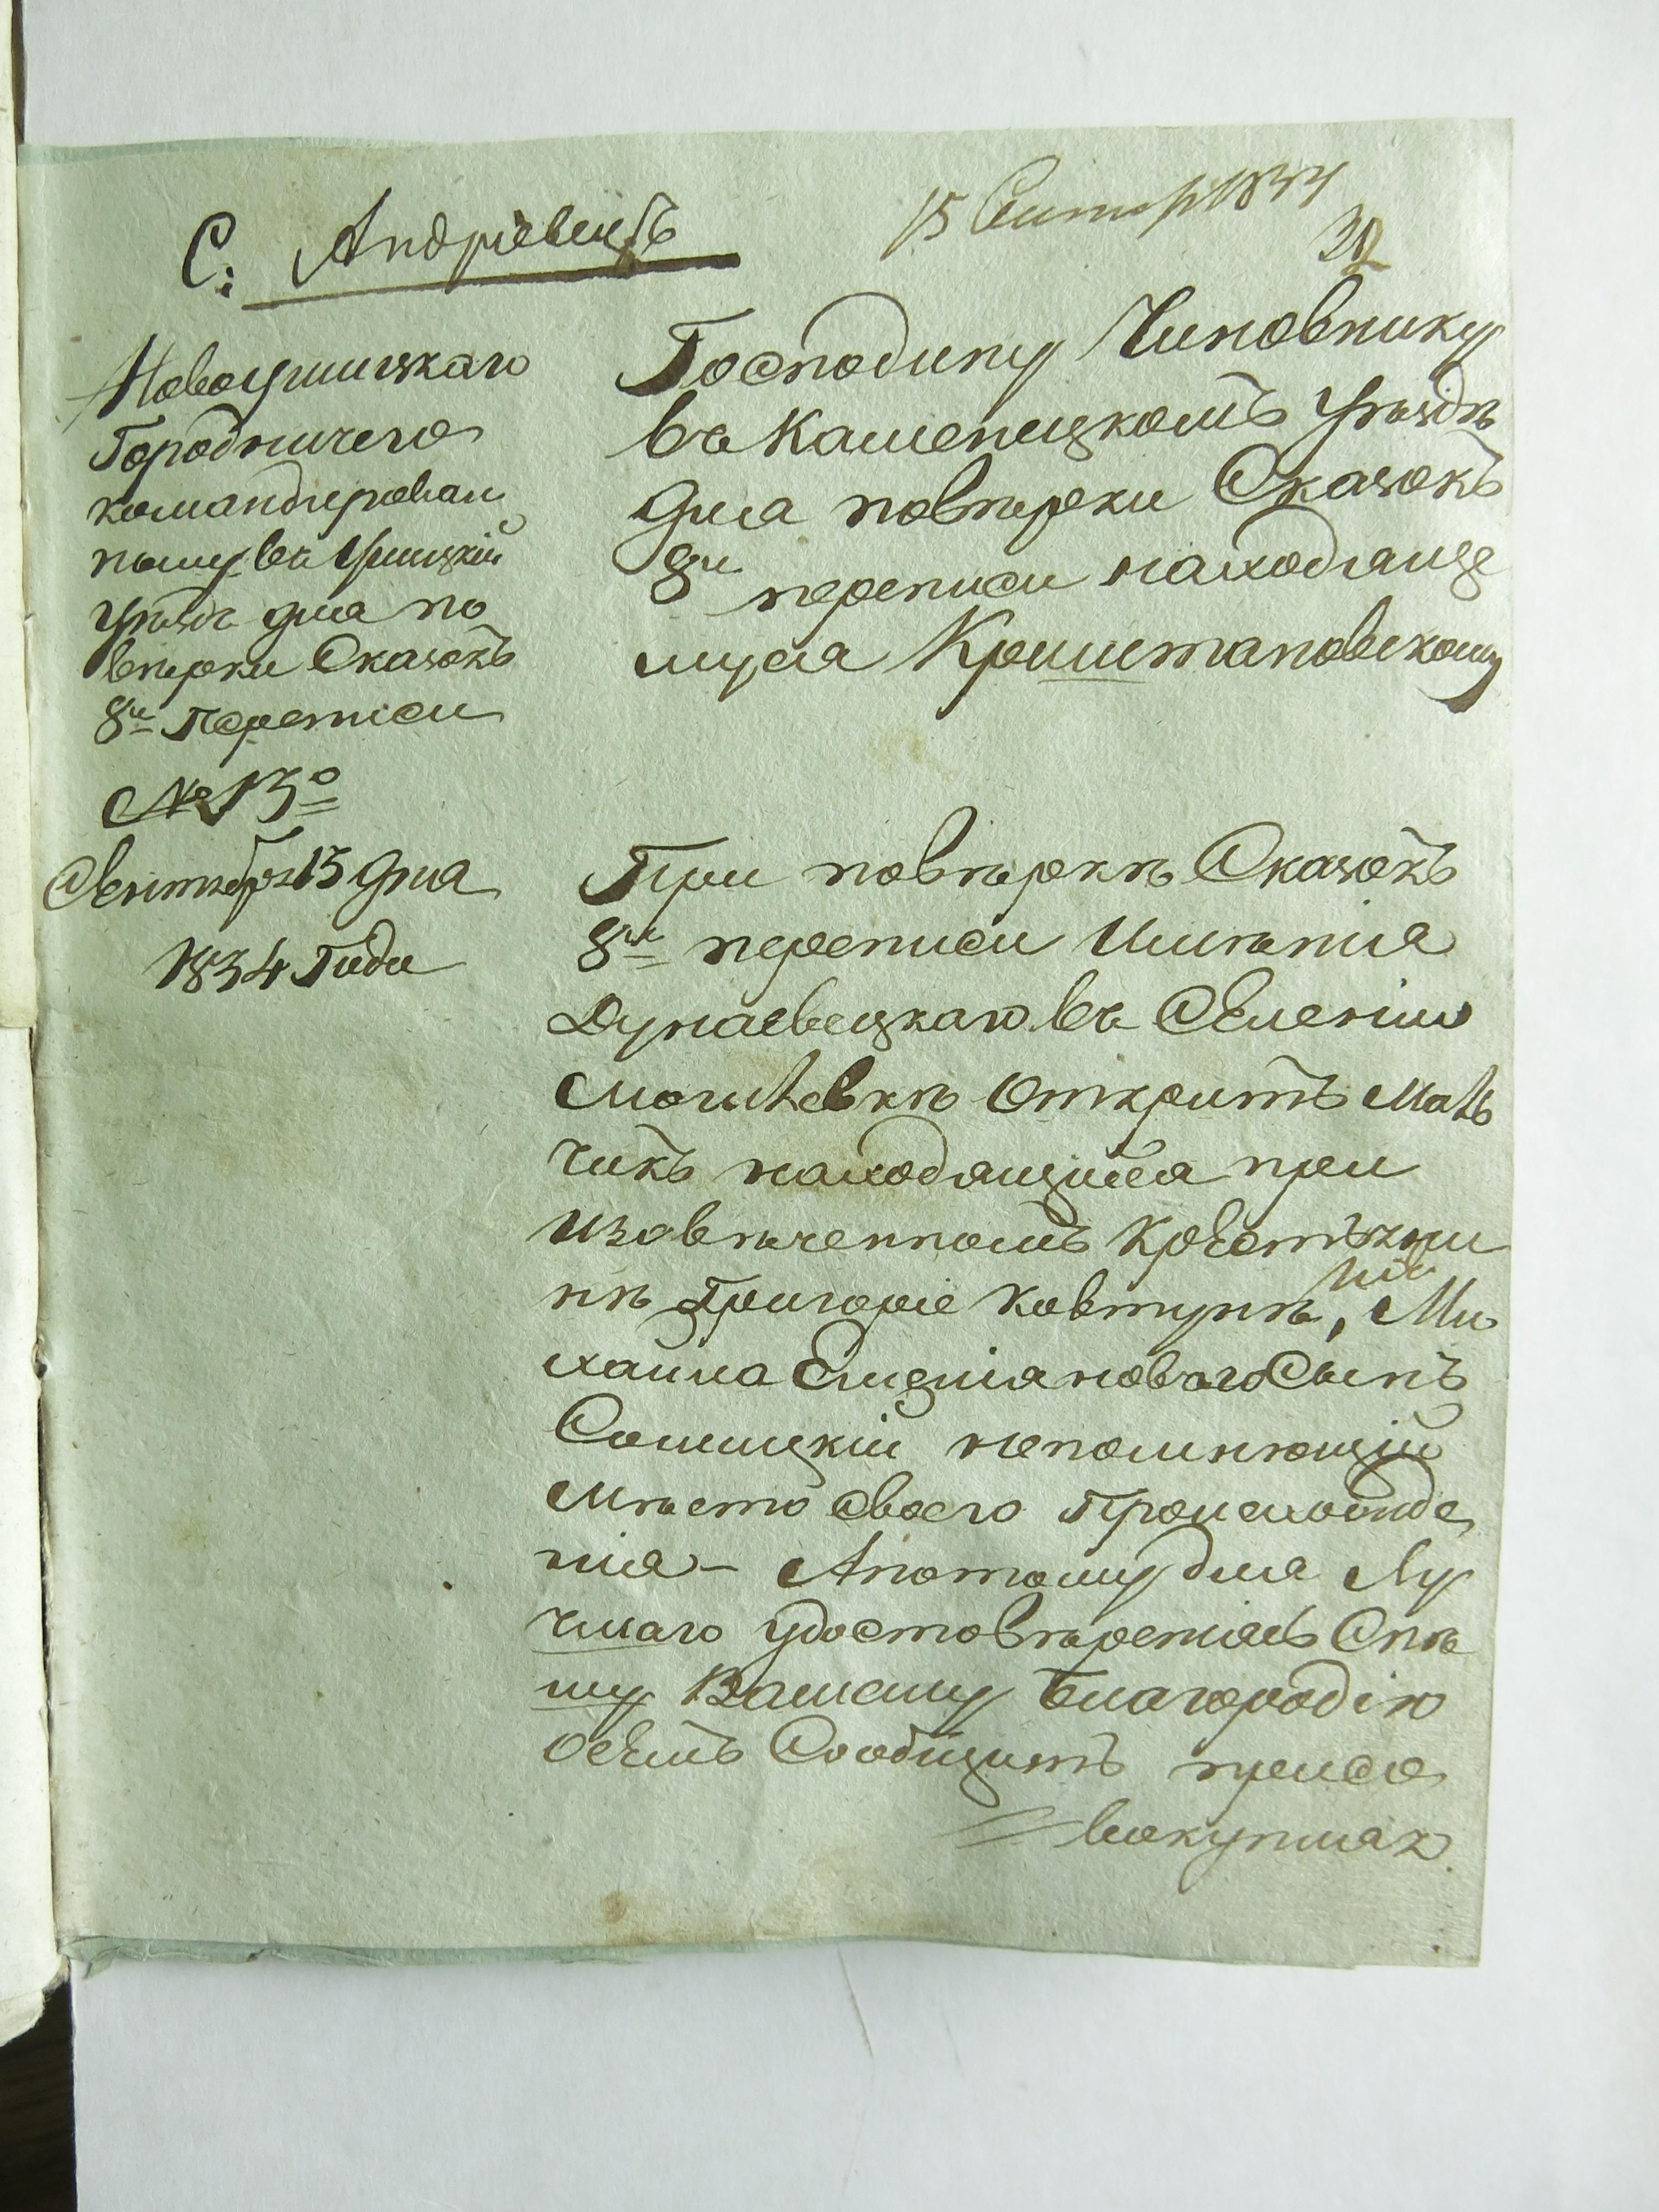 15 Сентяб 1834
С: Андріевецъ
Новоушицкаго
Городничего
командирован
ному въ Ушицкій
уѣздъ для по
вѣрки Сказокъ
8й Переписи
№ 13
Сентября 13 дня
1834 Года
Господину Чиновнику
въ Каменецкомъ уѣздѣ
для повѣрки Сказокъ
8й переписи находяще
муся Криштановскому
При повѣркѣ Сказокъ
8й переписи имѣнія
Дунаевецкаго въ Селеніи
Могилевкѣ открытъ маль
чикъ находящійся при
изовѣченномъ Крестьяни
нѣ Григоріе Ковтунѣ,
Михаила Емеліановаго Сынъ
Сомицкій непомнющій
мѣсто своего происхожде
нія – Апотому для лу
чшаго удостовѣренія Спѣ
шу Вашему Благородію
осемъ Сообщить присо
вокупляя